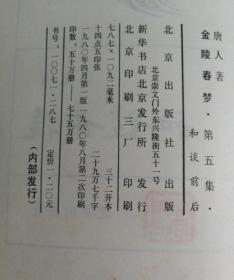 唐人著
金陵春梦·第五集·
和谈前后
北京出版社 出版
北京崇文门外东兴隆街五十一号
新华书店北京发行所 发行
北京印刷三厂 印刷
七八七×一〇九二毫米 三十二开本
十四点五印张 二十九万七千字
一九八〇年四月第一版一九八〇年八月第二次印刷
印数:五十万册 七十五万册
书号:一〇〇七一·二八七 定价一·二〇元
(内部发行)